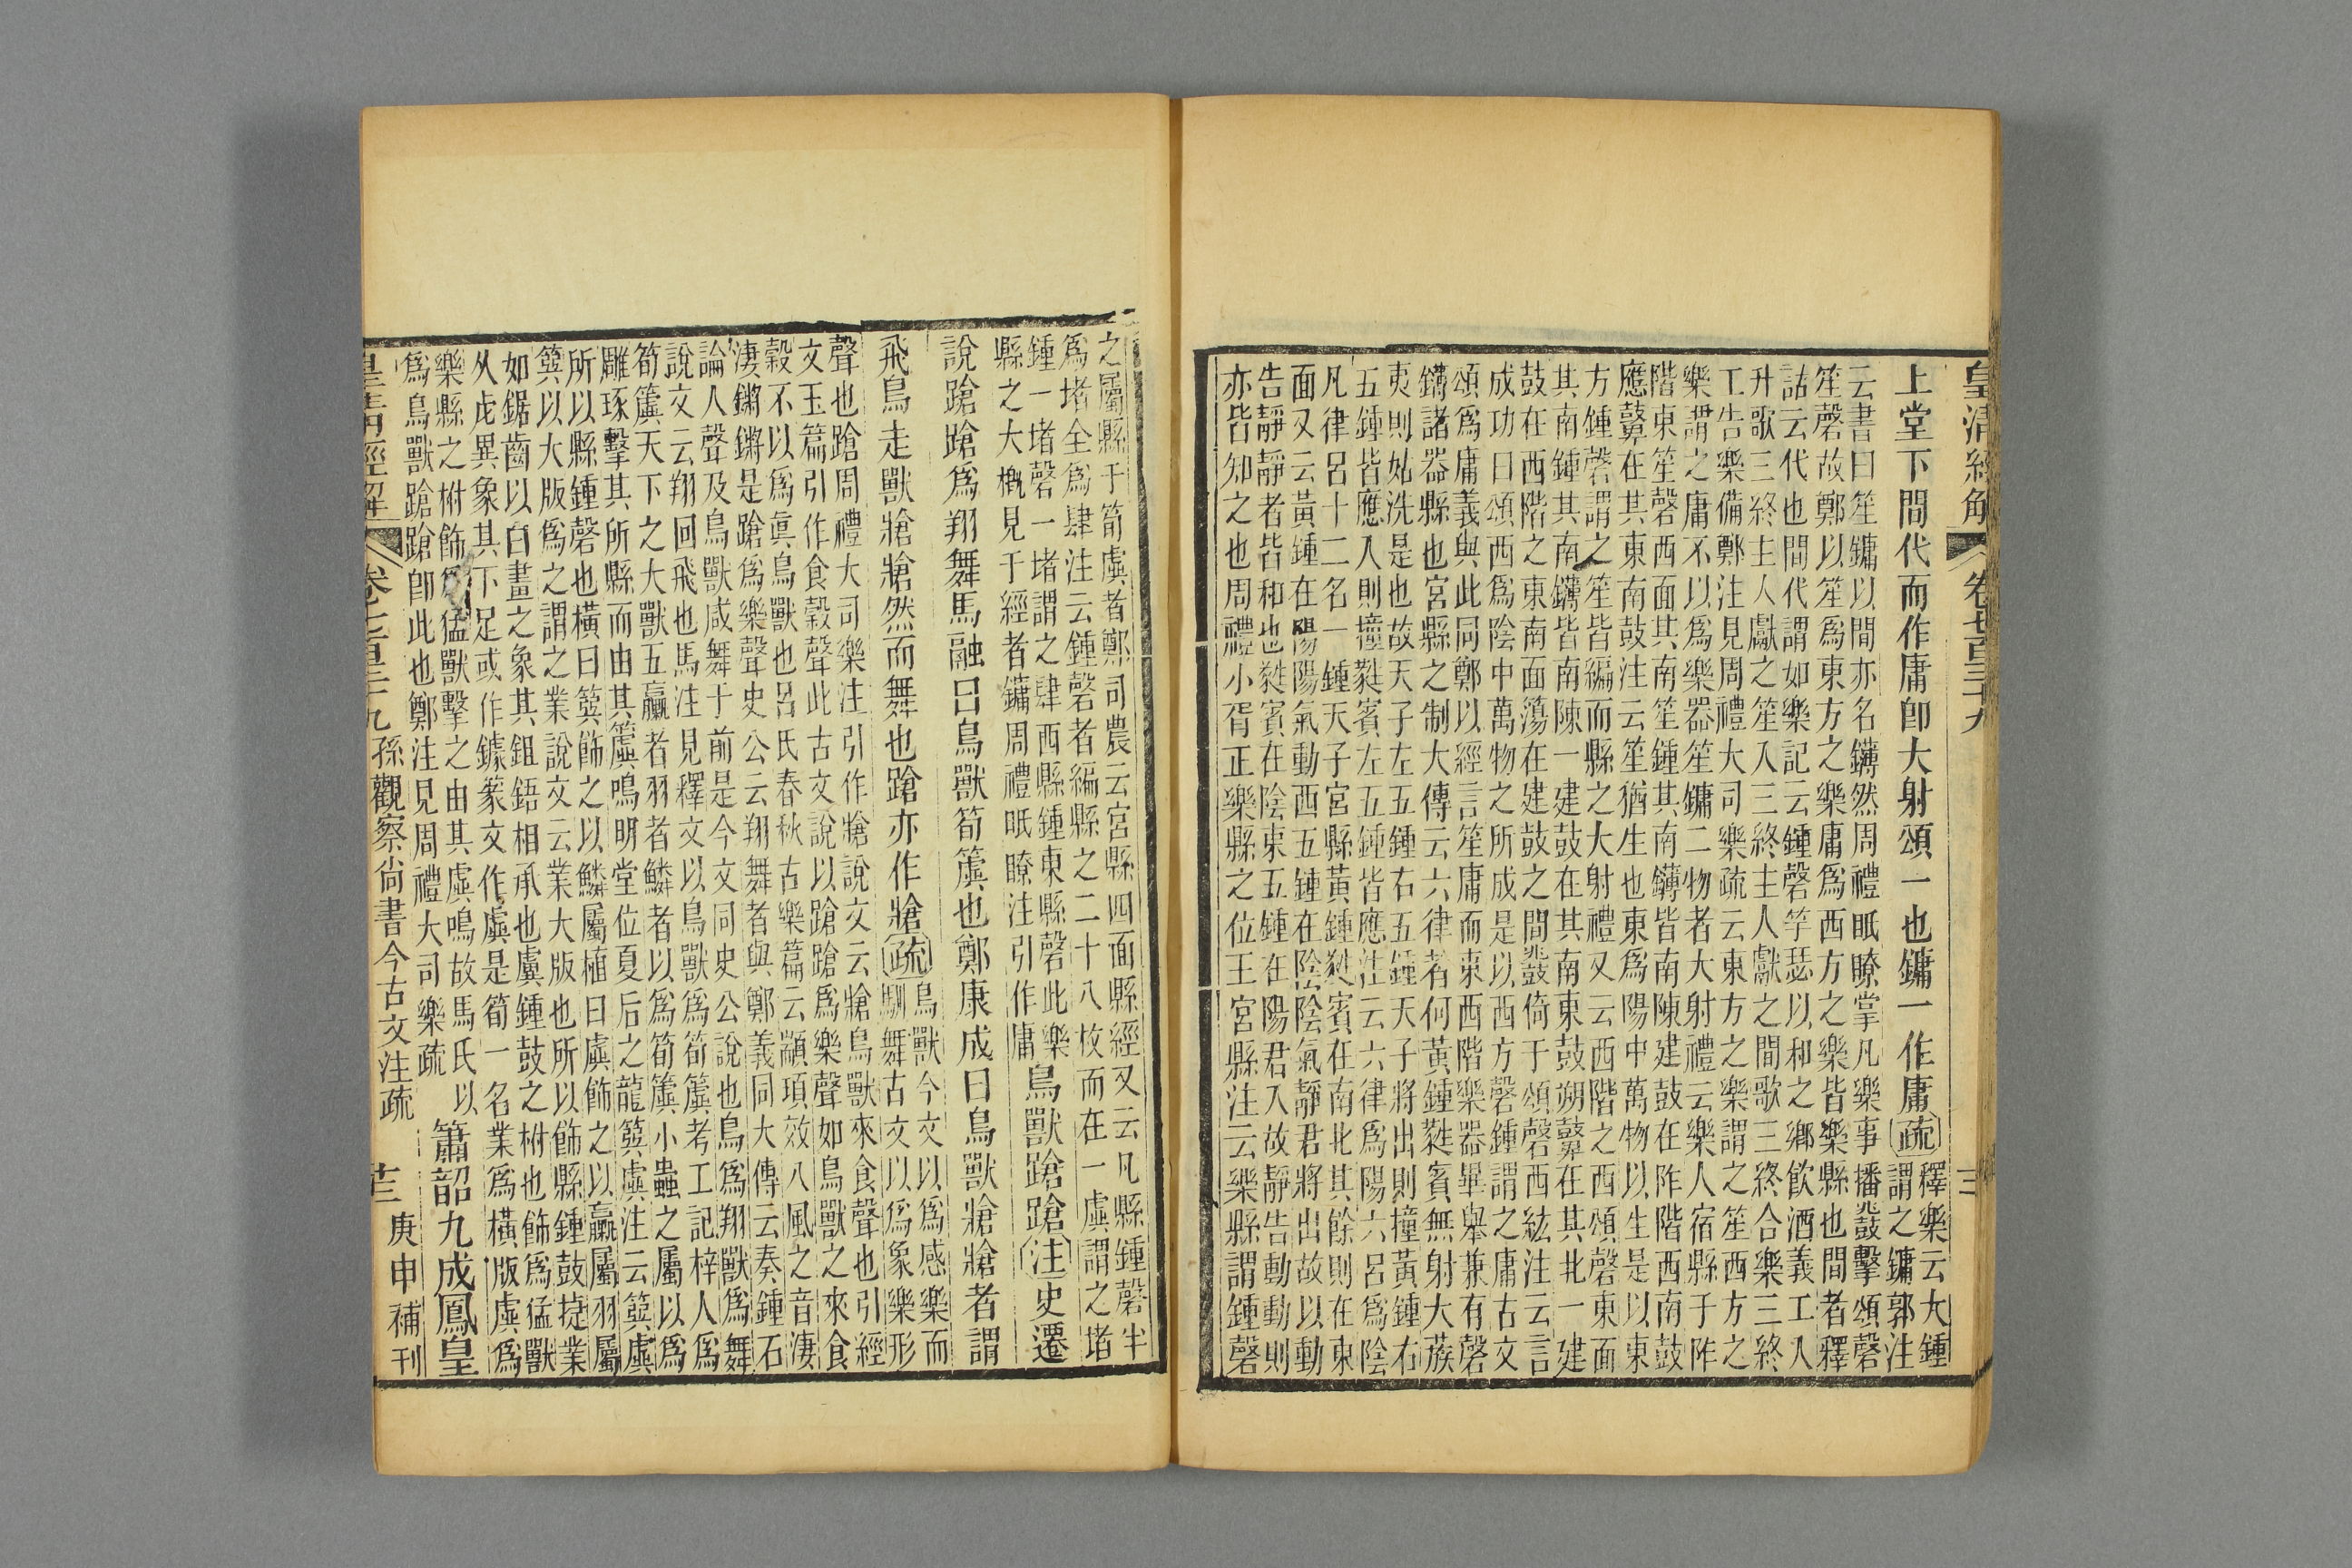 皇清經解 卷七百三十九 三
上堂下間代而作庸卽大射頌一也鏞一作庸疏 釋樂云大鍾
謂之鏞郭注
云書曰笙鏞以間亦名鑮然周禮眂瞭掌凡樂事播鼗擊頌磬
笙磬故鄭以笙爲東方之樂庸爲西方之樂皆樂縣也間者釋
詁云代也間代謂如樂記云鍾磬竽瑟以和之鄉飲酒義工入
升歌三終主人獻之笙入三終主人獻之間歌三終合樂三終
工告樂備鄭注見周禮大司樂疏云東方之樂謂之笙西方之
樂謂之庸不以爲樂器笙鏞二物者大射禮云樂人宿縣于阼
階東笙磬西面其南笙鍾其南鑮皆南陳建鼓在阼階西南鼓
應鼙在其東南鼓注云笙猶生也東爲陽中萬物以生是以東
方鍾磬謂之笙皆編而縣之大射禮又云西階之西頌磬東面
其南鍾其南鑮皆南陳一建鼓在其南東鼓朔鼙在其北一建
鼓在西階之東南面簜在建鼓之間鼗倚于頌磬西紘注云言
成功曰頌西爲陰中萬物之所成是以西方磬鍾謂之庸古文
頌爲庸義與此同鄭以經言笙庸而東西階樂器畢舉兼有磬
鑮諸器縣也宮縣之制大傳云六律者何黃鍾蕤賓無射大蔟
夷則姑洗是也故天子左五鍾右五鍾天子將出則撞黃鍾右
五鍾皆應入則撞蕤賓左五鍾皆應注云六律爲陽六呂爲陰
凡律呂十二名一鍾天子宮縣黃鍾蕤賓在南北其餘則在東
面又云黃鍾在陽陽氣動西五鍾在陰陰氣靜君將出故以動
告靜靜者皆和也蕤賓在陰東五鍾在陽君入故靜告動動則
亦皆知之也周禮小胥正樂縣之位王宮縣注云樂縣謂鍾磬
之屬縣于筍虡者鄭司農云宮縣四面縣經又云凡縣鍾磬半
爲堵全爲肆注云鍾磬者編縣之二十八枚而在一虡謂之堵
鍾一堵磬一堵謂之肆西縣鍾東縣磬此樂
縣之大概見于經者鏞周禮眂瞭注引作庸
鳥獸蹌蹌注史遷
說蹌蹌爲翔舞馬融曰鳥獸筍簴也鄭康成曰鳥獸牄牄者謂
飛鳥走獸牄牄然而舞也蹌亦作牄疏 鳥獸今文以爲感樂而
馴舞古文以爲象樂形
聲也蹌周禮大司樂注引作牄說文云牄鳥獸來食聲也引經
文玉篇引作食榖聲此古文說以蹌蹌爲樂聲如鳥獸之來食
榖不以爲眞鳥獸也呂氏春秋古樂篇云顓頊效八風之音淒
淒鏘鏘是蹌爲樂聲史公云翔舞者與鄭義同大傳云奏鍾石
論人聲及鳥獸咸舞于前是今文同史公說也鳥爲翔獸爲舞
說文云翔回飛也馬注見釋文以鳥獸爲筍簴考工記梓人爲
筍簴天下之大獸五贏者羽者鱗者以爲筍簴小蟲之屬以爲
雕琢擊其所縣而由其簴鳴明堂位夏后之龍簨虡注云簨虡
所以縣鍾磬也橫曰簨飾之以鱗屬植曰虡飾之以贏屬羽屬
簨以大版爲之謂之業說文云業大版也所以飾縣鍾鼓捷業
如鋸齒以白畫之象其鉏鋙相承也虡鍾鼓之柎也飾爲猛獸
从虍異象其下足或作鐻篆文作虡是筍一名業爲橫版虡爲
樂縣之柎飾爲猛獸擊之由其虡鳴故馬氏以
爲鳥獸蹌蹌卽此也鄭注見周禮大司樂疏
簫韶九成鳳皇
皇清經解 卷七百三十九 孫觀察尙書今古文注疏 十三 庚申補刊